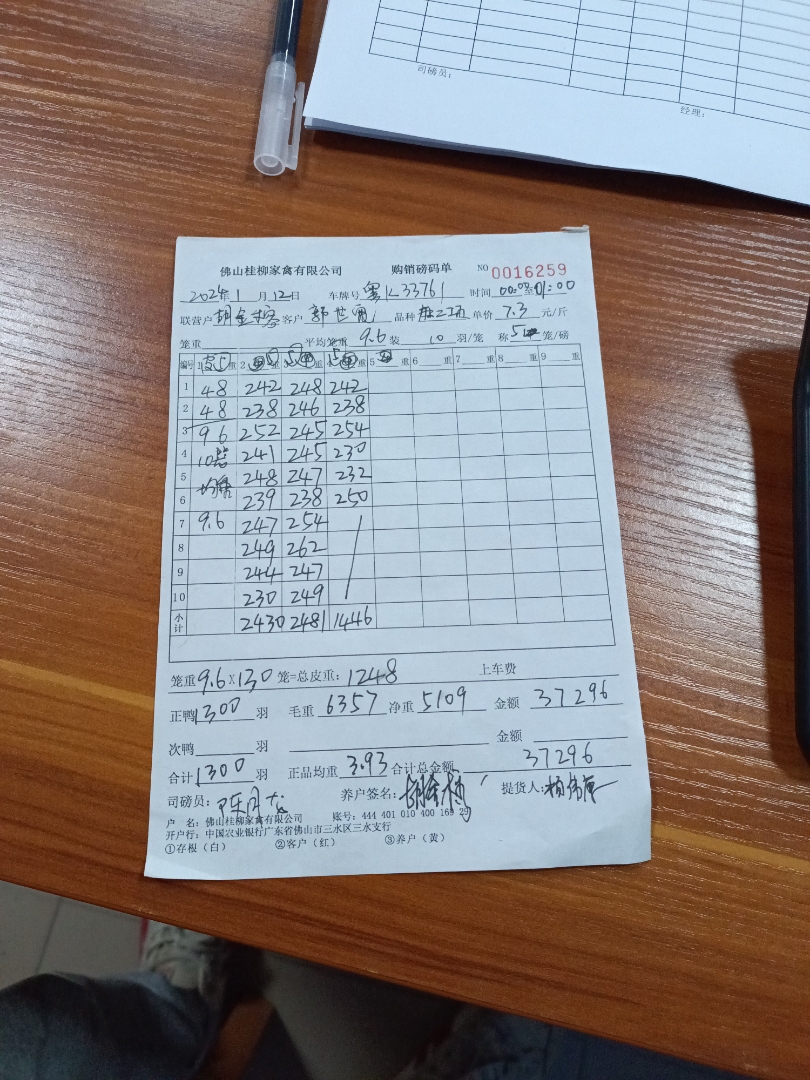 司磅员：
经理：
佛山桂柳家禽有限公司 购销磅码单 NO 0016259
2024年1月12日 车牌号 粤K33761 时间 00:00至01:00
联营户 客户 品种 单价 7.3 元/斤
笼重 平均笼重 9.6 装 10 羽/笼 称 笼/磅
编号 1 重 2 重 3 重 4 重 5 重 6 重 7 重 8 重 9 重
1 48 242 248 242
2 48 238 246 238
3 96 252 245 254
4 241 245 230
5 248 247 232
6 239 238 250
7 9.6 247 254
8 249 262
9 244 247
10 230 249
小计 2430 2481 1446
笼重 9.6 X 130 笼=总皮重：1248 上车费
正鸭 1300 羽 毛重 6357 净重 5109 金额 37296
次鸭 羽 金额
合计 1300 羽 正品均重 3.93 合计总金额 37296
司磅员： 养户签名： 提货人：
户 名：佛山桂柳家禽有限公司 账号：444 401 010 400 169 29
开户行：中国农业银行广东省佛山市三水区三水支行
①存根（白） ②客户（红） ③养户（黄）